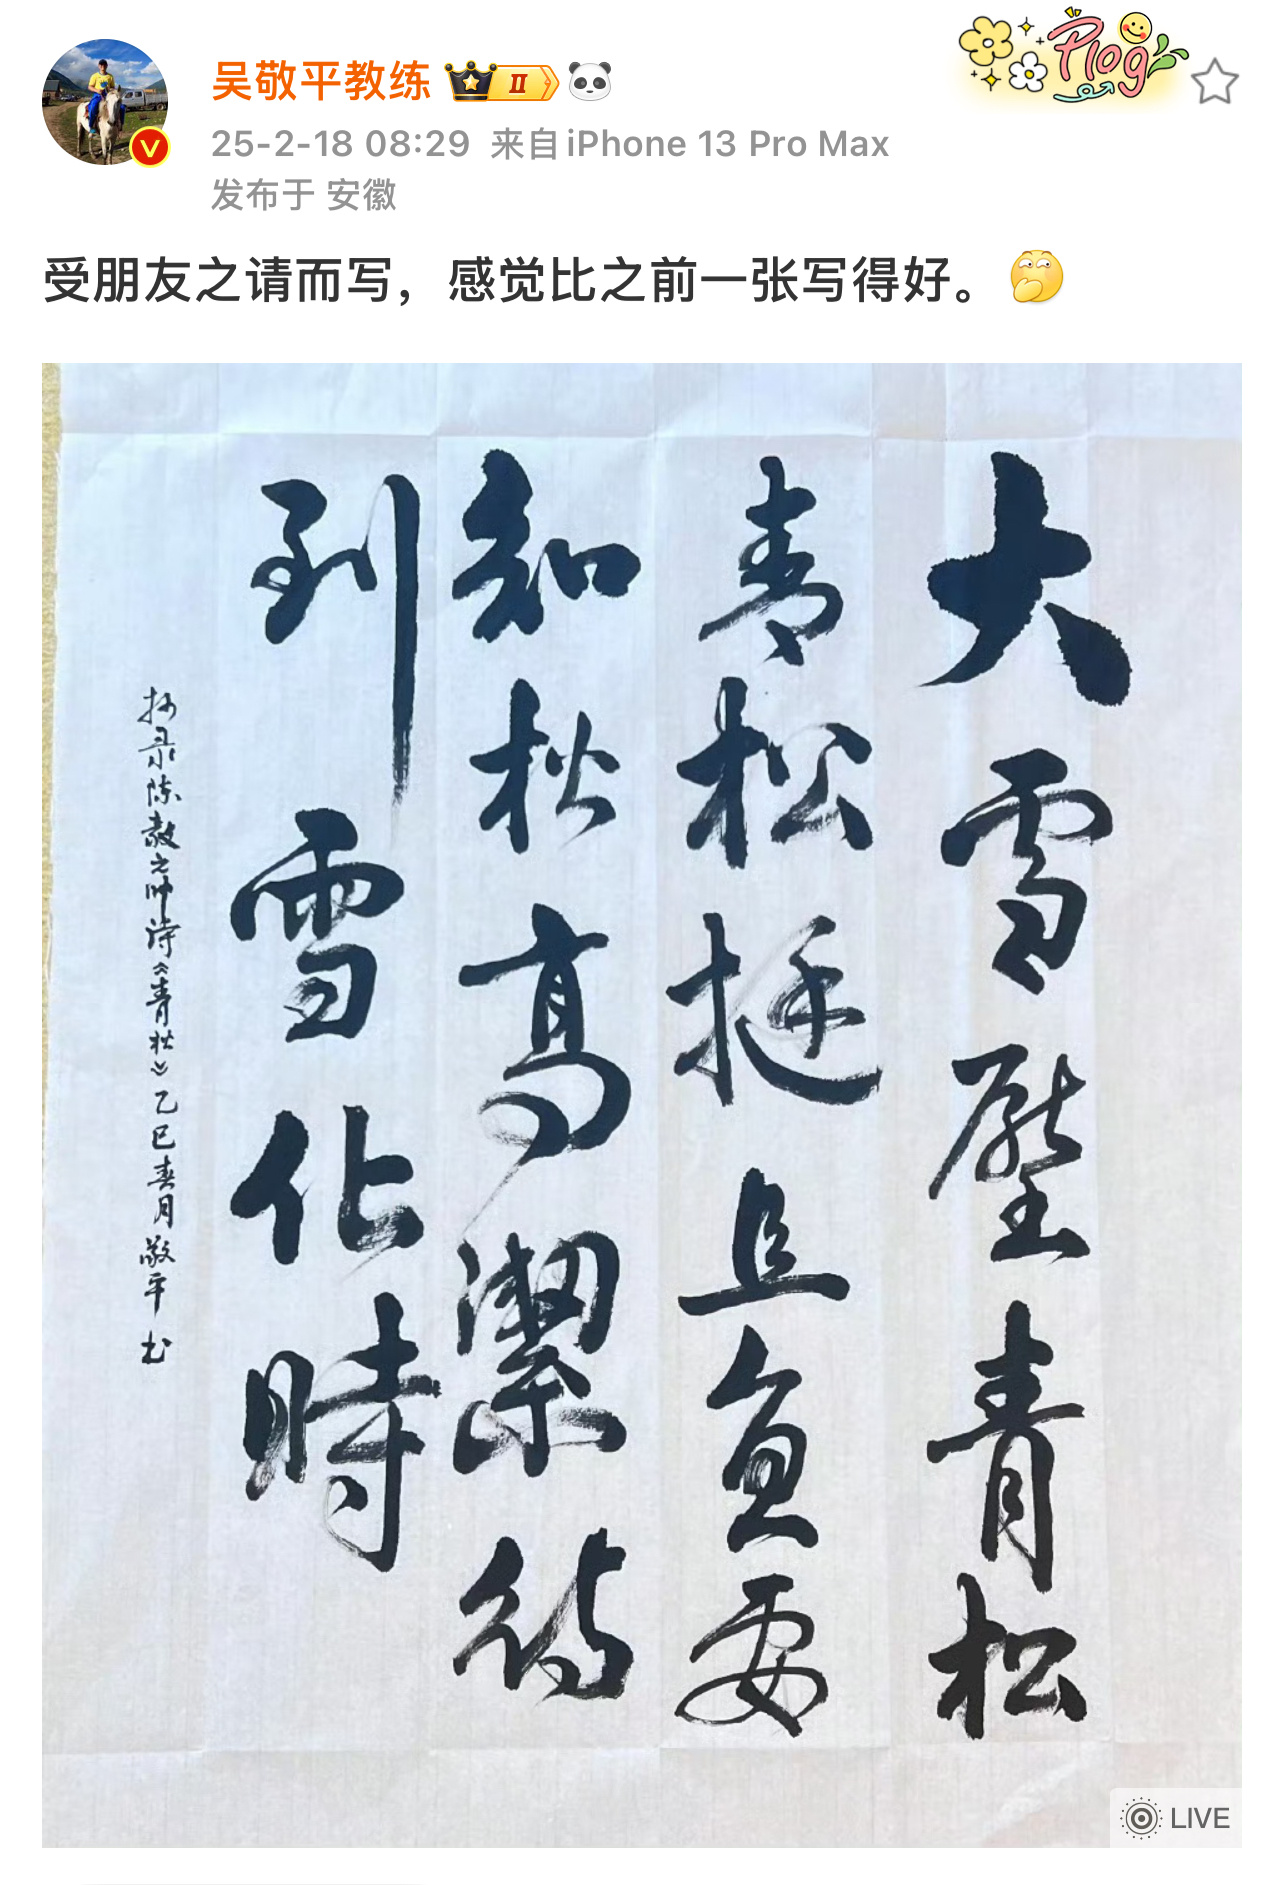 吴敬平教练 II
Plog
25-2-18 08:29 来自 iPhone 13 Pro Max
发布于 安徽
受朋友之请而写，感觉比之前一张写得好。
大雪壓青松
青松挺且直要
知松高潔待
到雪化時
抄录陈毅元帅诗《青松》乙巳春月敬平书
LIVE